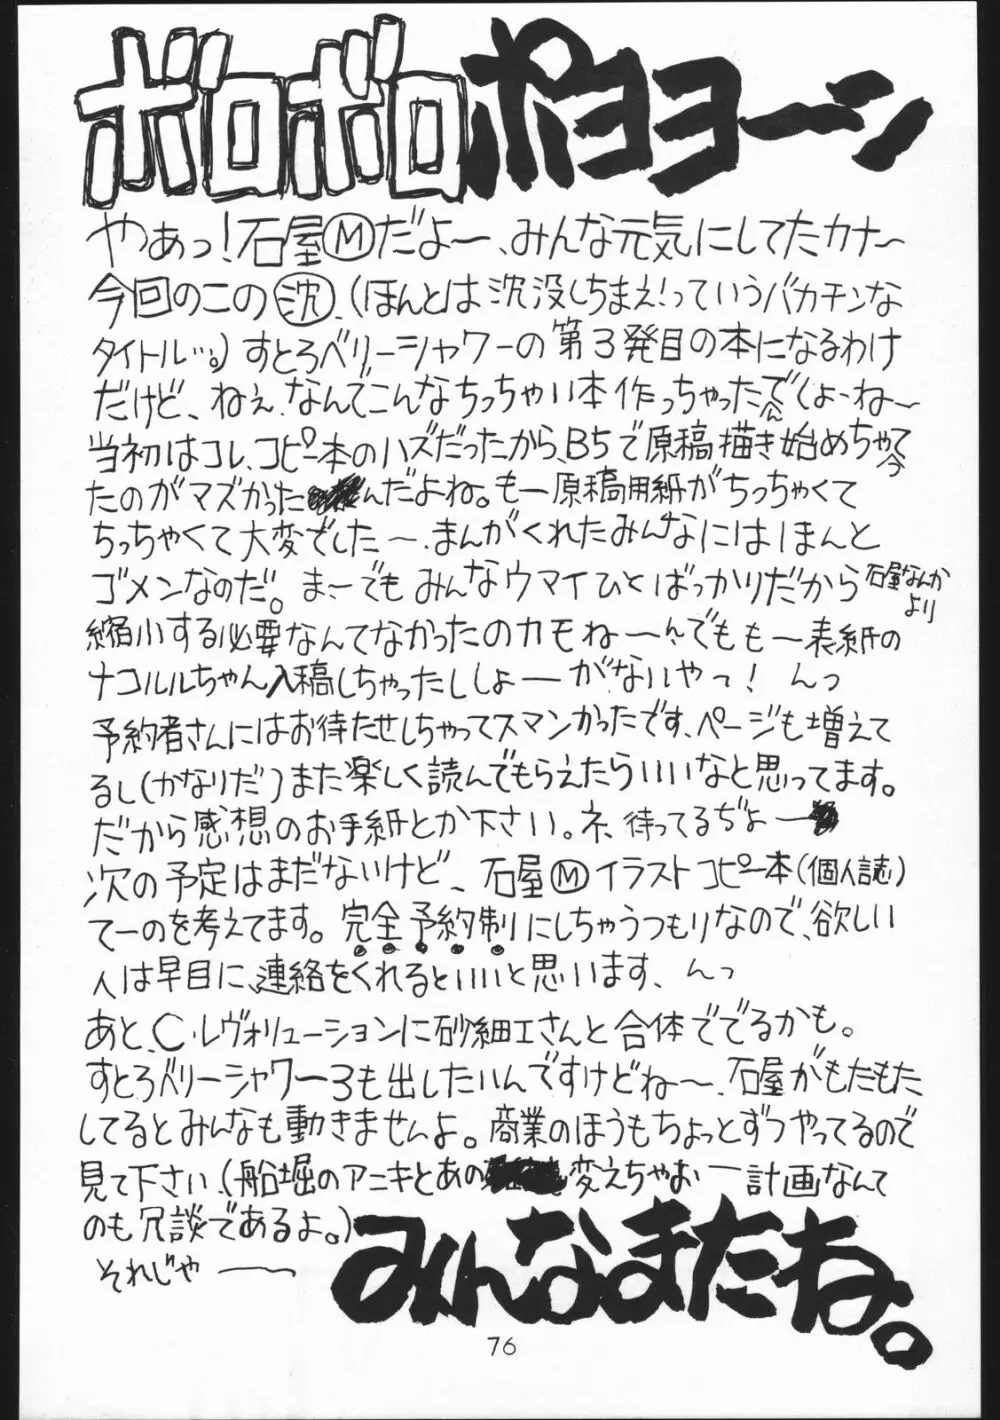 ボロボロポヨヨーン
やぁっ!石屋Ⓜだよ〜、みんな元気にしてたカナ〜
今回のこの㊋、(ほんとは沈没しちまえ!っていうバカチンな
タイトル…。)すとろベリーシャワーの第3発目の本になるわけ
だけど、ねぇ、なんでこんなちっちゃい本作っちゃったんでしょーね〜
当初はコレ、コピー本のハズだったから、B5で原稿描き始めちゃって
たのがマズかったんだよね。もー原稿用紙がちっちゃくて
ちっちゃくて大変でした〜、まんがくれたみんなにはほんと
ゴメンなのだ。まーでもみんなウマイひとばっかりだから石屋なんかより
縮小する必要なんてなかったのカモね〜んでももー表紙の
ナコルルちゃん入稿しちゃったししょーがないやっ!んっ
予約者さんにはお待たせしちゃってスマンかったです、ページも増えて
るし(かなりだ)また楽しく読んでもらえたらいいなと思ってます。
だから感想のお手紙とか下さい。ネ、待ってるぢょー
次の予定はまだないけど、石屋Ⓜイラストコピー本(個人誌)
てーのを考えてます。完全予約制にしちゃうつもりなので、欲しい
人は早目に、連絡をくれるといいと思います、んっ
あと、C・レヴォリューションに砂細工さんと合体ででるかも。
すとろベリーシャワー3も出したいんですけどね〜、石屋がもたもた
してるとみんなも動きませんよ。商業のほうもちょっとずつやってるので
見て下さい、(船堀のアニキとあの変えちゃおー計画なんて
のも冗談であるよ。)
それじゃ——
みんなまたね。
76